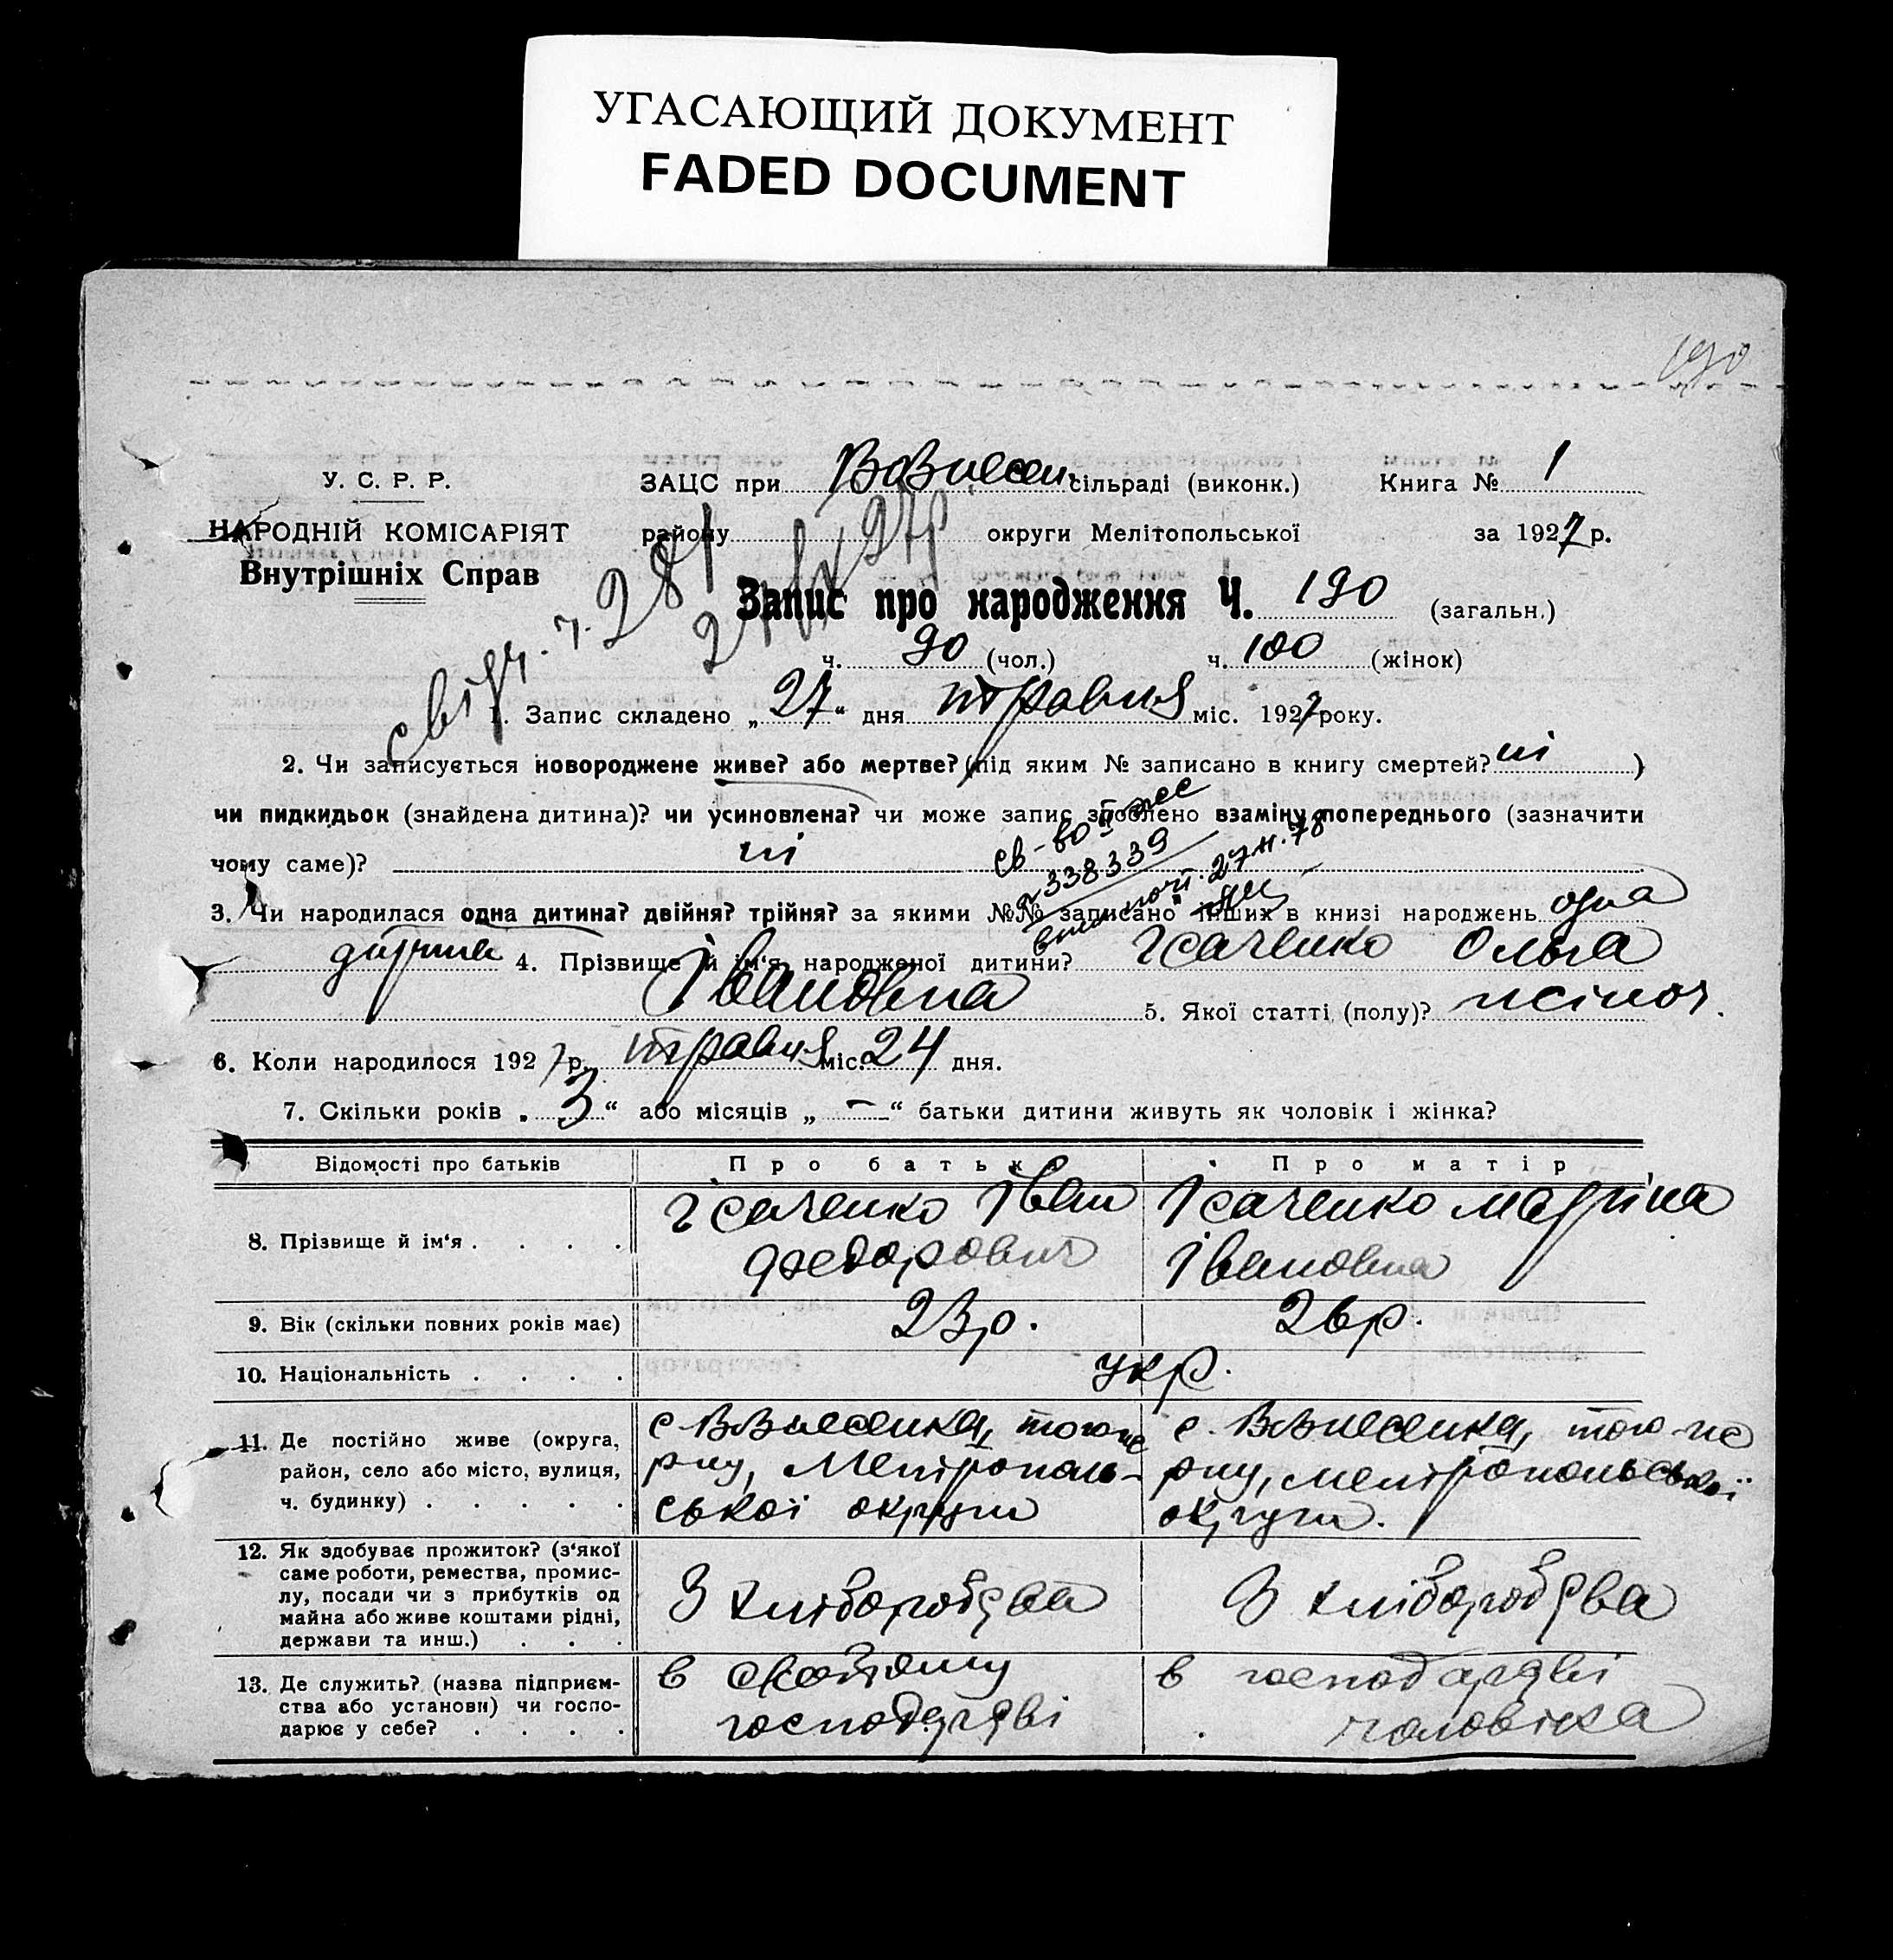 УГАСАЮЩИЙ ДОКУМЕНТ
FADED DOCUMENT
190
У. С. Р. Р.
НАРОДНІЙ КОМІСАРІЯТ
Внутрішніх Справ
ЗАЦС при Вознесен. сільраді (виконк.) Книга № 1
району округи Мелітопольської за 1927 р.
свідч. ч. 281
Запис про народження Ч. 190 (загальн.)
ч. 90 (чол.) ч. 100 (жінок)
1. Запис складено „ 27 “ дня травня міс. 1927 року.
2. Чи записується новороджене живе? або мертве? (під яким № записано в книгу смертей? ні )
чи пидкидьок (знайдена дитина)? чи усиновлена? чи може запис зроблено взаміну попереднього (зазначити
чому саме)? ні
св-во
338339
27
3. Чи народилася одна дитина? двійня? трійня? за якими №№ записано інших в книзі народжень одна
дитина 4. Прізвище й ім‘я народженої дитини? Ісаченко Ольга
Івановна 5. Якої статті (полу)? жіноч.
6. Коли народилося 1927 р. травня міс. 24 дня.
7. Скільки років „ 3 “ або місяців „ — “ батьки дитини живуть як чоловік і жінка?
Відомості про батьків Про батька Про матір
8. Прізвище й ім‘я . . . . Ісаченко Іван Ісаченко Мотрина
Федорович Івановна
9. Вік (скільки повних років має) 23 р. 26 р.
10. Національність . . . . укр.
11. Де постійно живе (округа, с. Вознесенка, того-же с. Вознесенка, того-же
район, село або місто, вулиця, р-ну, Мелітополь- р-ну, Мелітопольської
ч. будинку) . . . . . ської округи округи.
12. Як здобуває прожиток? (з‘якої
саме роботи, ремества, промис-
лу, посади чи з прибутків од З хліборобства З хліборобства
майна або живе коштами рідні,
держави та инш.) . . .
13. Де служить? (назва підприєм- в своїому в господарстві
ства або установи) чи госпо- господарстві чоловіка
дарює у себе? . . . .